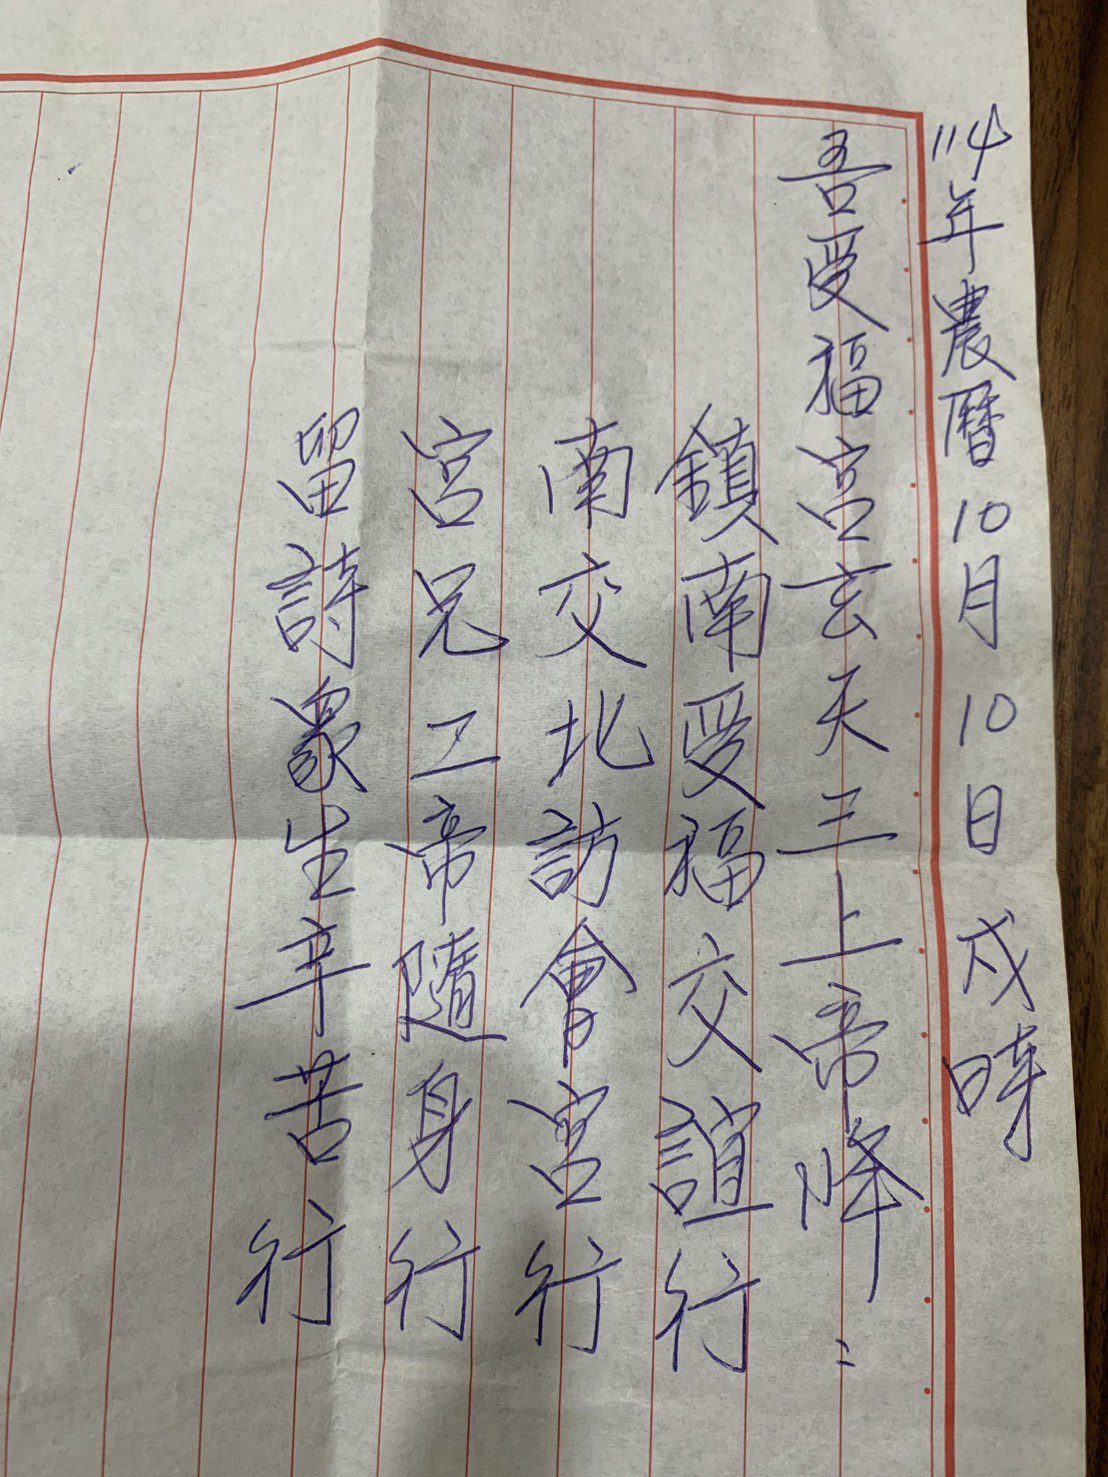 114年農曆10月10日戌時
吾受福宮玄天三上帝降：
鎮南受福交誼行
南交北訪會宮行
宮兄二帝隨身行
留詩眾生辛苦行